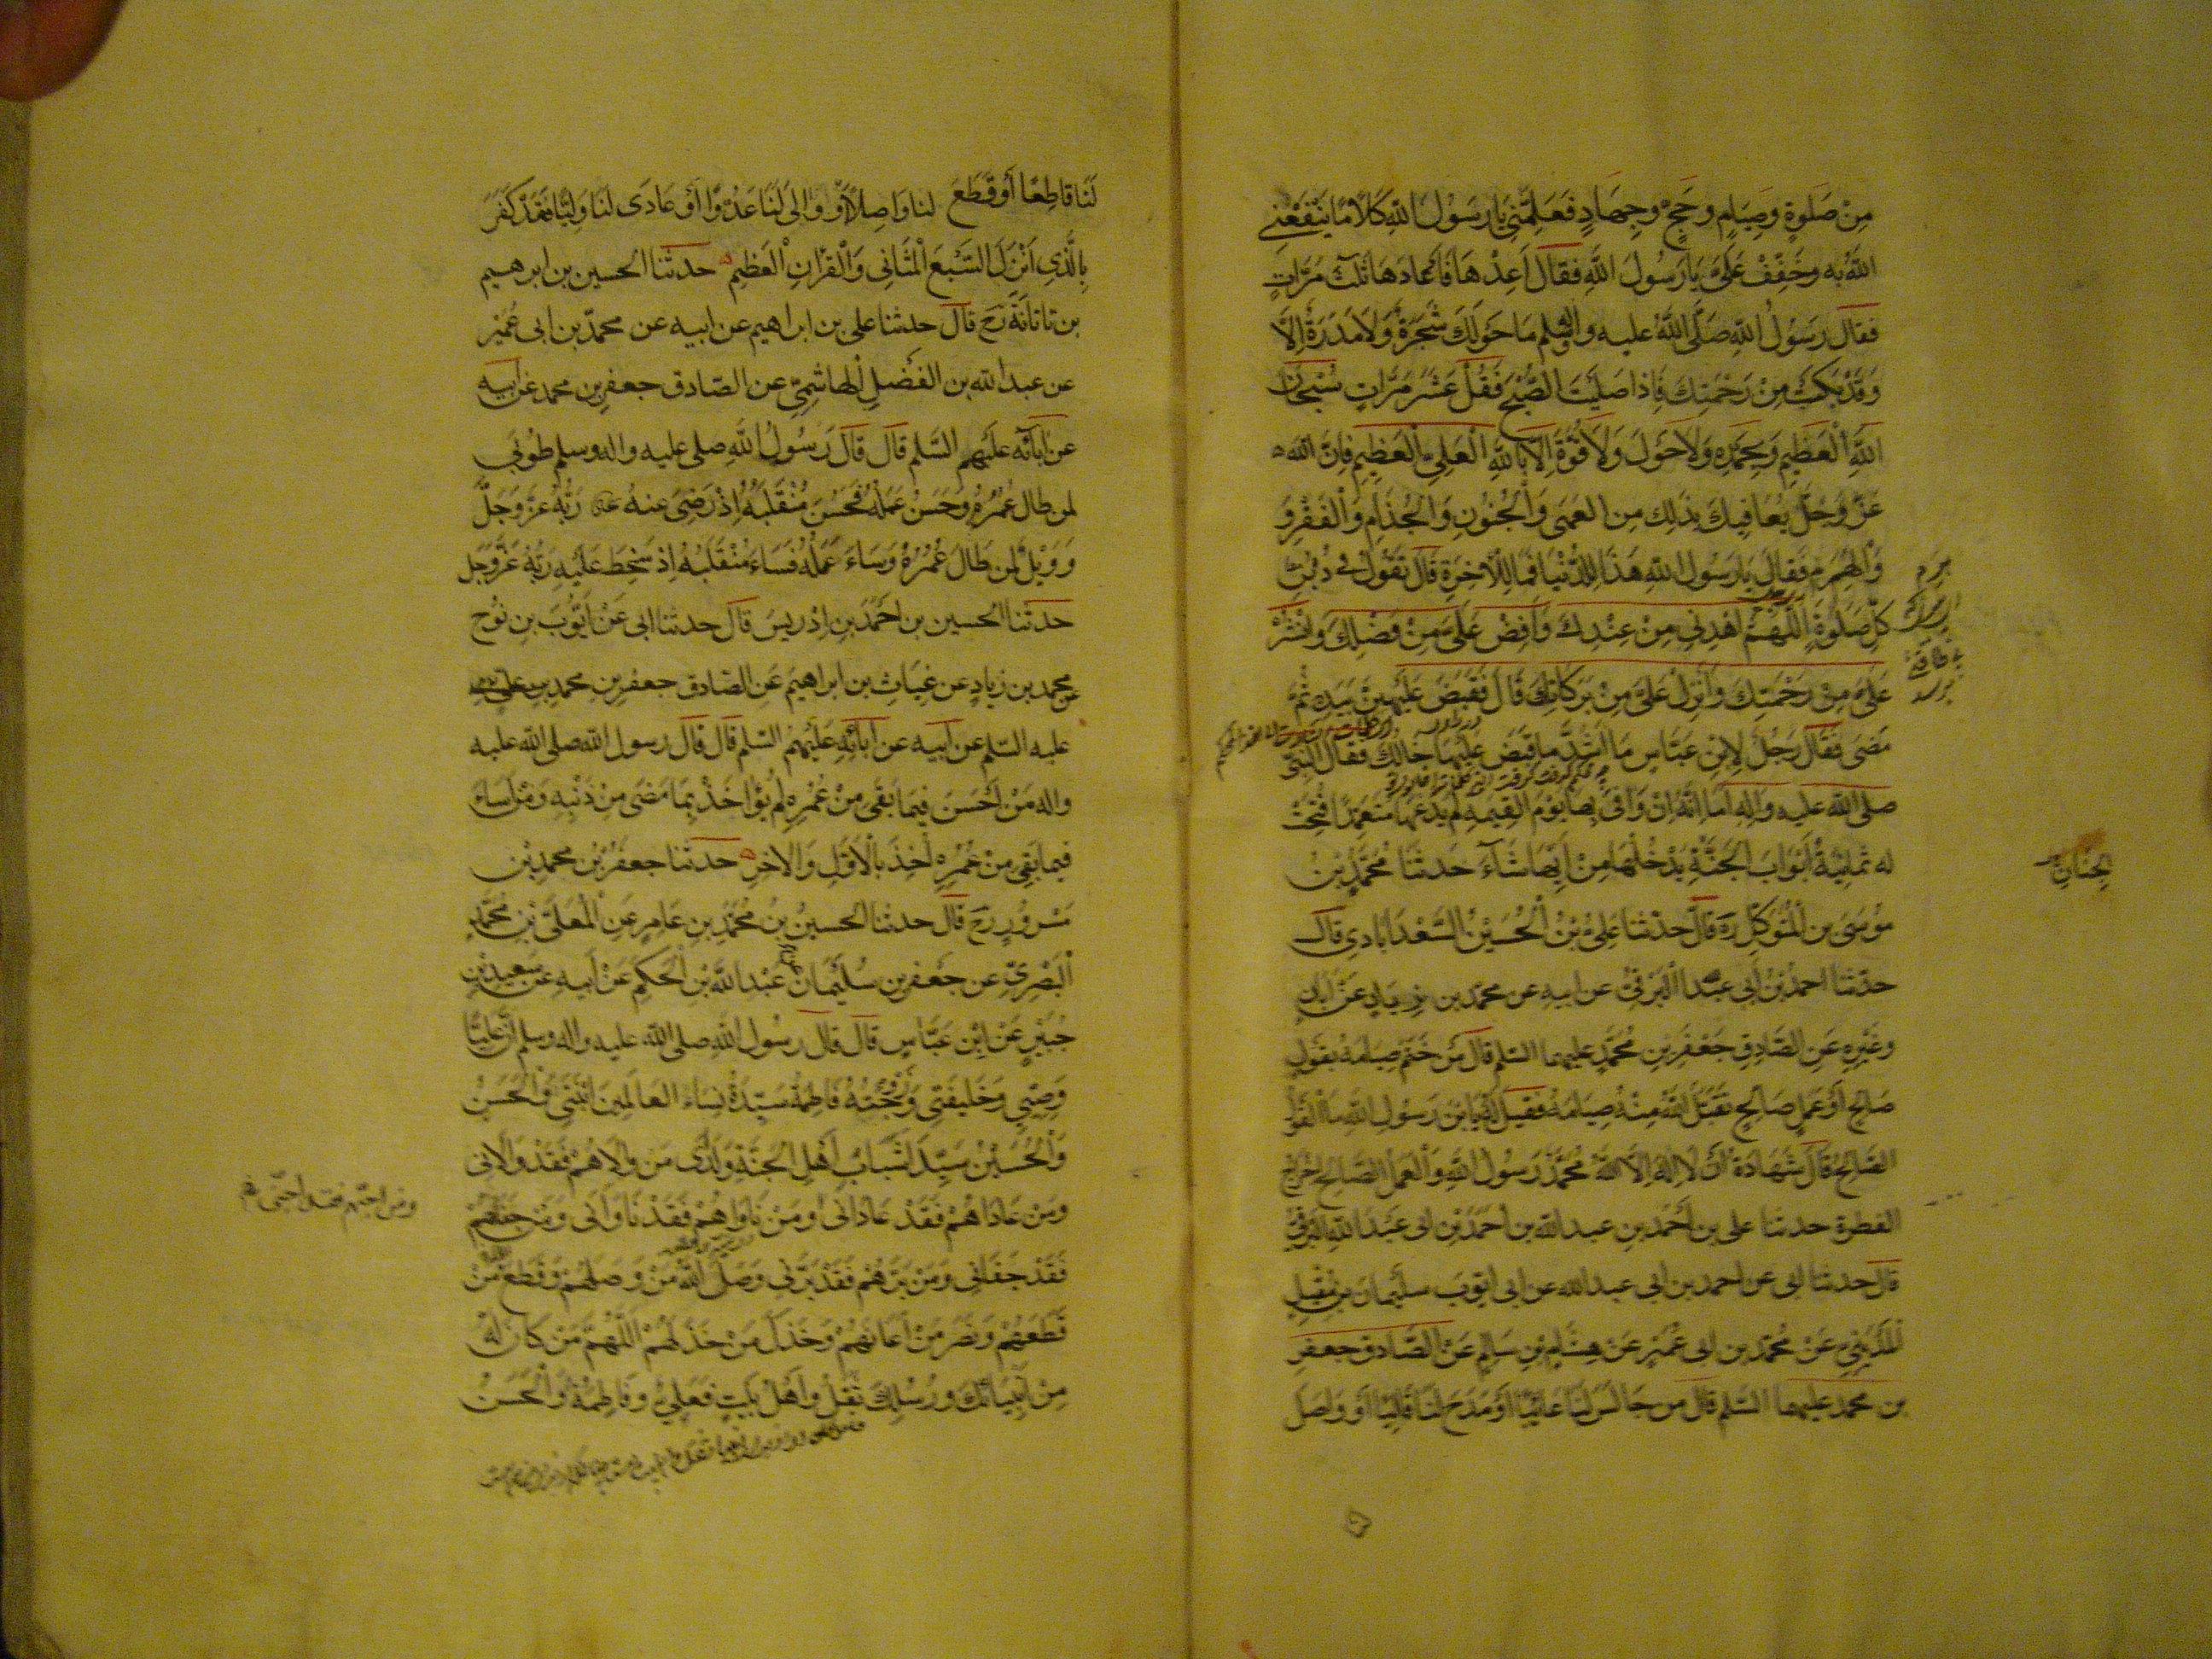 مِنْ صَلٰوةٍ وَصِيَامٍ وَحَجٍّ وَجِهَادٍ فَعَلِّمْنِي يَا رَسُولَ اللهِ كَلَامًا يَنْفَعُنِي
اللهُ بِهِ وَخَفِّفْ عَلَيَّ يَا رَسُولَ اللهِ فَقَالَ أَعِدْهَا فَأَعَادَهَا ثَلٰثَ مَرَّاتٍ
فقال رَسُولُ اللهِ صَلَّى اللهُ عليه وآله وسلم مَا حَوْلَكَ شَجَرَةٌ وَلَا مَدَرَةٌ إِلَّا
وَقَدْ بَكَتْ مِنْ رَحْمَتِكَ فَإِذَا صَلَّيْتَ الصُّبْحَ فَقُلْ عَشْرَ مَرَّاتٍ سُبْحَانَ
اللهِ الْعَظِيمِ وَبِحَمْدِهِ وَلَا حَوْلَ وَلَا قُوَّةَ إِلَّا بِاللهِ الْعَلِيِّ الْعَظِيمِ فَإِنَّ اللهَ
عَزَّ وَجَلَّ يُعَافِيكَ بِذٰلِكَ مِنَ الْعَمَى وَالْجُنُونِ وَالْجُذَامِ وَالْفَقْرِ وَ
وَالْهَرَمِ فَقَالَ يَا رَسُولَ اللهِ هَذَا لِلدُّنْيَا فَمَا لِلْآخِرَةِ قَالَ تَقُولُ فِي دُبُرِ
كُلِّ صَلٰوةٍ اَللّٰهُمَّ اهْدِنِي مِنْ عِنْدِكَ وَأَفِضْ عَلَيَّ مِنْ فَضْلِكَ وَانْشُرْ
عَلَيَّ مِنْ رَحْمَتِكَ وَأَنْزِلْ عَلَيَّ مِنْ بَرَكَاتِكَ قَالَ فَقَبَضَ عَلَيْهِنَّ بِيَدِهِ ثُمَّ
مَضَى فَقَالَ رَجُلٌ لِابْنِ عَبَّاسٍ مَا أَشَدَّ مَا قَبَضَ عَلَيْهَا خَالُكَ فَقَالَ النَّبِيُّ
صلى الله عليه وآله أَمَا إِنَّهُ إِنْ وَافَى بِهَا يَوْمَ الْقِيٰمَةِ لَمْ يَدَعْهَا مُتَعَمِّدًا فُتِحَتْ
له ثَمٰنِيَةُ أَبْوَابِ الْجَنَّةِ يَدْخُلُهَا مِنْ أَيِّهَا شَاءَ حَدثنَا مُحَمَّدُ بْنُ
الْجِنَانِ
مُوسَى بن الْمُتَوَكِّلِ ره قَالَ حَدَّثَنَا عَلِيُّ بْنُ الْحُسَيْنِ السَّعْدَابَادِي قَالَ
حدثنا احمدُ بْنُ أَبِي عبد الله الْبَرْقِيُّ عن ابيه عن محمّد بن زِيَادٍ عَنْ أَبَانٍ
وَغَيْرِهِ عَنِ الصَّادِقِ جَعْفَرِ بْنِ مُحَمَّدٍ عليهما السّلم قَالَ مَنْ خَتَمَ صِيَامَهُ بِقَوْلٍ
صَالِحٍ أَوْ عَمَلٍ صَالِحٍ تَقَبَّلَ اللهُ مِنْهُ صِيَامَهُ فَقِيلَ لَهُ يَا ابْنَ رَسُولِ اللهِ مَا الْقَوْلُ
الصَّالِحُ قَالَ شَهَادَةُ أَنْ لَا إِلٰهَ إِلَّا اللهُ مُحَمَّدٌ رَسُولُ اللهِ وَالْعَمَلُ الصَّالِحُ إِخْرَاجُ
الفطرة حدثنا على بن أَحْمَدَ بن عبد الله بن أَحْمَدَ بْنِ ابى عَبْدِ اللهِ الْبَرْقِيُّ
قَالَ حدثنا ابى عن احمد بن ابى عبد الله عن ابى ايّوبَ سليمان بن مُقْبِلٍ
الْمَدَيْنِيِّ عَنْ مُحَمَّدِ بن ابى عُمَيْرٍ عَنْ هِشَامِ بْنِ سَالِمٍ عَنِ الصَّادِقِ جعفرِ
بن محمد عليهما السّلم قَالَ من جَالَسَ لَنَا عَائِبًا أَوْ مَدَحَ لَنَا قَالِيًا أَوْ وَاصَلَ
لَنَا قَاطِعًا أَوْ قَطَعَ لنا وَاصِلًا أَوْ وَالَى لَنَا عَدُوًّا أَوْ عَادَى لَنَا وَلِيًّا فَقَدْ كَفَرَ
بِالَّذِي اَنْزَلَ السَّبْعَ الْمَثَانِي وَالْقُرْآنَ الْعَظِيمَ حدثنا الحسين بن ابرهيم
بن تَاتَانَةَ رَحَ قَالَ حدثنا على بن ابراهيم عن ابيه عن محمّد بن ابى عُمَيْرٍ
عن عبد الله بن الفَضْلِ الْهَاشِمِيِّ عن الصّادق جعفر بن محمد عن ابيه
عن اٰبَائِه عَلَيْهِم السّلم قَالَ قَالَ رَسُولُ اللهِ صلى عليه واله وسلم طُوبَى
لمن طال عُمُرُهُ وَحَسُنَ عَمَلُهُ فَحَسُنَ مُنْقَلَبُهُ إِذْ رَضِيَ عنه رَبُّهُ عَزَّ وَجَلَّ
وَوَيْلٌ لمن طَالَ عُمُرُهُ وَسَاءَ عَمَلُهُ فَسَاءَ مُنْقَلَبُهُ إِذْ سَخِطَ عَلَيْهِ رَبُّهُ عَزَّ وَجَلَّ
حدثنا الحسين بن احمد بن إِدْرِيسَ قَالَ حدثنا ابى عَنْ أَيُّوبَ بنِ نُوحٍ
عن محمد بن زيادٍ عن غِيَاثِ بن ابراهيمَ عَنِ الصّادق جعفر بن محمد بن علي
عليه السّلم عن ابيه عن اٰبَائِهِ عَلَيْهِمُ السّلم قَالَ قَالَ رسول الله صلى الله عليه
واله مَنْ أَحْسَنَ فِيمَا بَقِيَ مِنْ عُمُرِهِ لَمْ يُؤَاخَذْ بِمَا مَضَى مِنْ ذَنْبِهِ وَمَنْ أَسَاءَ
فيما بَقِيَ مِنْ عُمُرِهِ أُخِذَ بِالْأَوَّلِ وَالْآخِرِ حدثنا جعفر بن محمد بن
مَسْرُورٍ رَحَ قَالَ حدثنا الحسينُ بنُ مُحَمَّدِ بنِ عَامِرٍ عَنِ الْمُعَلَّى بْنِ مُحَمَّدٍ
الْبَصْرِيِّ عن جَعفر بن سُلَيْمَانَ عَنْ عَبْدِ اللهِ بْنِ الْحَكَمِ عَنْ أَبِيهِ عن سعيد بْنِ
جُبَيْرٍ عَنْ ابْنِ عَبَّاسٍ قَالَ قَالَ رَسُولُ اللهِ صلى الله عليه واله وسلم إِنَّ عَلِيًّا
وَصِيِّي وَخَلِيفَتِي وَزَوْجَتُهُ فَاطِمَةُ سَيِّدَةُ نِسَاءِ الْعَالَمِينَ ابْنَتِي وَالْحَسَنُ
وَالْحُسَيْنُ سَيِّدَا شَبَابِ أَهْلِ الْجَنَّةِ وَلَدَىَّ مَن وَالَاهُمْ فَقَدْ وَالَانِي
وَمَنْ عَادَاهُمْ فَقَدْ عَادَانِي وَمَنْ نَاوَاهُمْ فَقَدْ نَاوَانِي وَمَنْ جَفَاهُمْ
ومن احبّهم فقد احبّنى
فَقَدْ جَفَانِي وَمَنْ بَرَّهُمْ فَقَدْ بَرَّنِي وَصَلَ اللهُ مَنْ وَصَلَهُمْ وَقَطَعَ مَنْ
قَطَعَهُمْ وَنَصَرَ مَنْ أَعَانَهُمْ وَخَذَلَ مَنْ خَذَلَهُمْ اَللّٰهُمَّ مَنْ كَانَ لَهُ
مِنْ أَنْبِيَائِكَ وَرُسُلِكَ ثَقَلٌ وَأَهْلُ بَيْتٍ فَعَلِيٌّ وَفَاطِمَةُ وَالْحَسَنُ